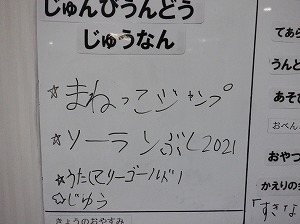 じゅんびうんどう
じゅうなん
☆まねっこジャンプ
☆ソーランぶし2021
☆うた(マリーゴールド)
☆じゆう
きょうのおやすみ
てあら
うんと
あそび
おべん
おやつ
かえりの
「すきな